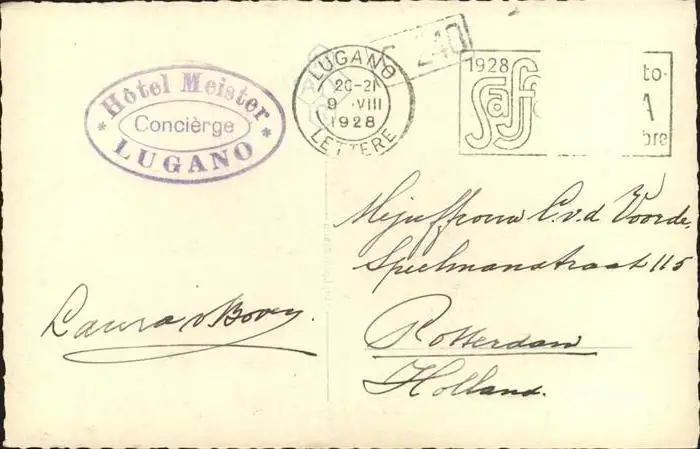 Hôtel Meister
Concièrge
LUGANO
LUGANO
20-21
9 .VIII
1928
LETTERE
240
1928
Saffa
to-
A
bre
Mejuffrouw C.v.d Voorde,
Speelmanstraat 115
Rotterdam
Holland.
Laura v Boven.